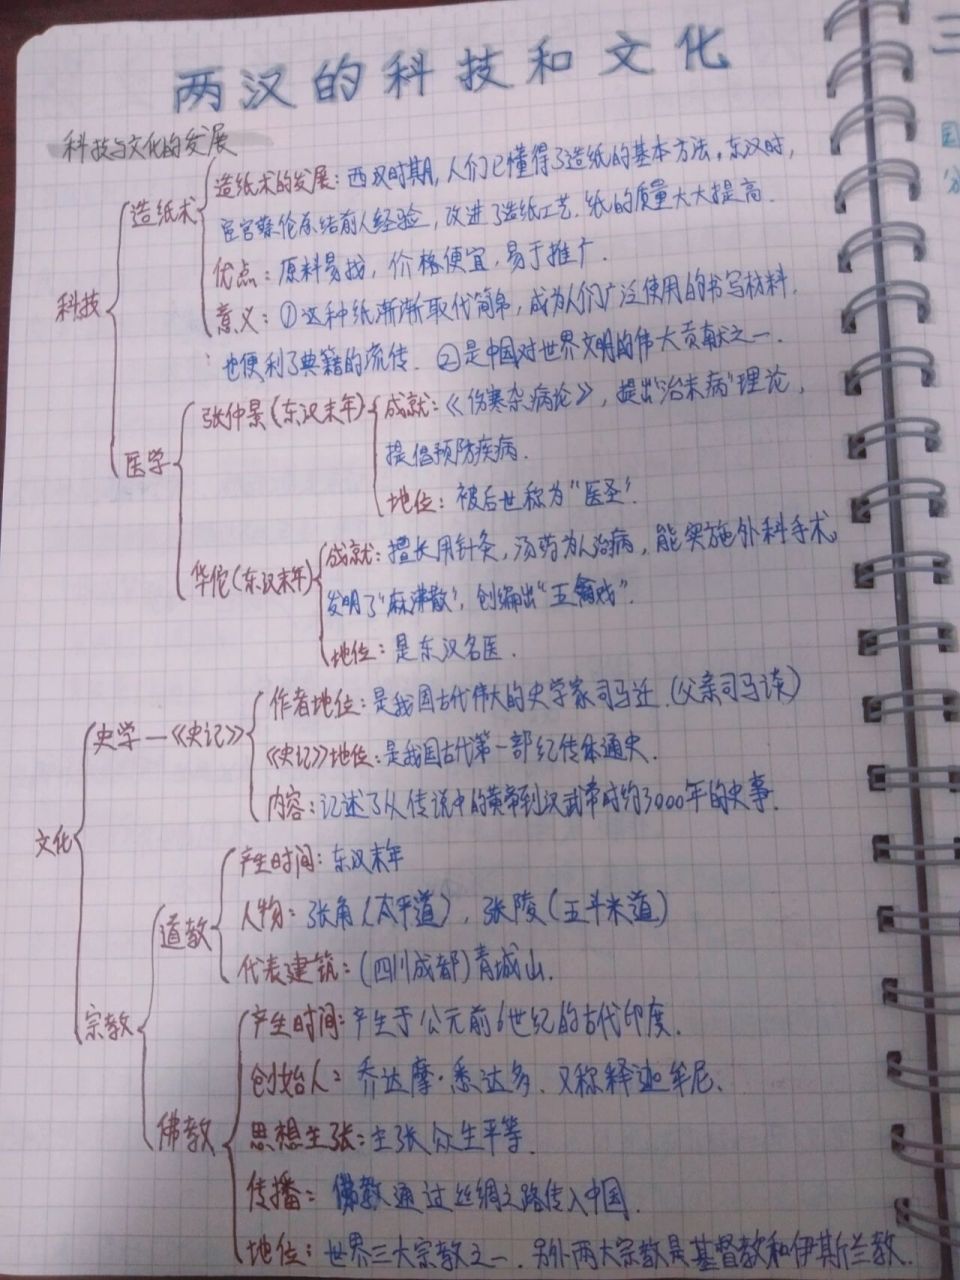 两汉的科技和文化
科技与文化的发展
造纸术的发展:西汉时期,人们已懂得了造纸的基本方法。东汉时,
造纸术
宦官蔡伦总结前人经验,改进了造纸工艺.纸的质量大大提高.
优点:原料易找,价格便宜,易于推广.
科技
意义:①这种纸渐渐取代简帛,成为人们广泛使用的书写材料.
也便利了典籍的流传.②是中国对世界文明的伟大贡献之一.
张仲景(东汉末年) 成就:《伤寒杂病论》,提出"治未病"理论,
提倡预防疾病.
医学
地位:被后世称为"医圣".
成就:擅长用针灸,汤药为人治病,能实施外科手术。
华佗(东汉末年)
发明了"麻沸散",创编出"五禽戏".
地位:是东汉名医.
作者地位:是我国古代伟大的史学家司马迁.(父亲司马谈)
史学—《史记》
《史记》地位:是我国古代第一部纪传体通史.
内容:记述了从传说中的黄帝到汉武帝时约3000年的史事.
文化
产生时间:东汉末年
道教
人物:张角(太平道),张陵(五斗米道)
代表建筑:(四川成都)青城山.
宗教
产生时间:产生于公元前6世纪的古代印度.
创始人:乔达摩·悉达多.又称释迦牟尼.
佛教
思想主张:主张众生平等.
传播:佛教通过丝绸之路传入中国.
地位:世界三大宗教之一.另外两大宗教是基督教和伊斯兰教.
三